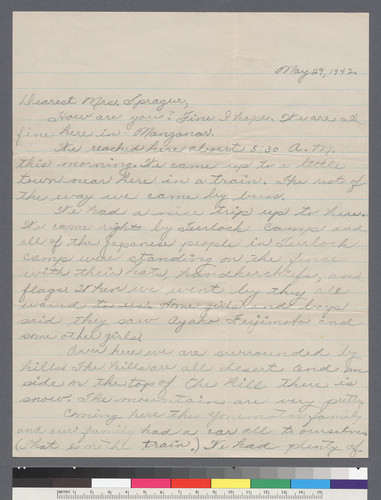 May 29, 1942
Dearest Mrs. Sprague,
How are you? Fine I hope. We are all
fine here in Manzanar.
We reached here about 8:30 A.M.
this morning. We came up to a little
town near here in a train. The rest of
the way we came by buss.
We had a nice trip up to here.
We came right by Turlock Camps and
all of the Japanese people in Turlock
Camps was standing on the fence
with their hats, handkerchiefs, and
flags. When we went by they all
waved to us. Some girls and boys
said they saw Ayako Fujimoto and
some other girls.
Over here we are surrounded by
hills. The hills are all desert and on
side on the top of the hill there is
snow. The mountain are very pretty.
Coming here the family
and our family had a car all to ourselves
(That is in the train.) We had plenty of